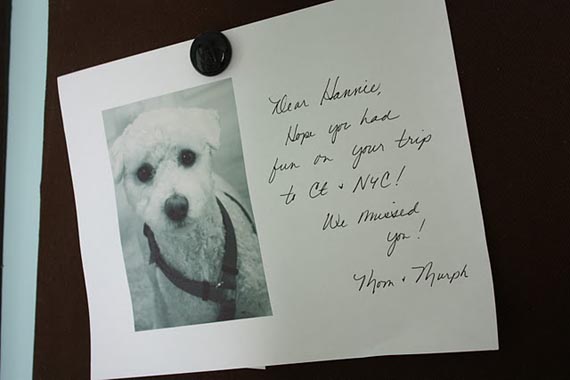 Dear Hannie,
Hope you had
fun on your trip
to Ct + NYC!
We missed
you!
Mom + Murph